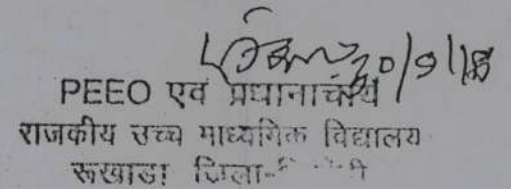 20/9/18
PEEO एवं प्रधानाचार्य
राजकीय उच्च माध्यमिक विद्यालय
रूखाडा जिला-